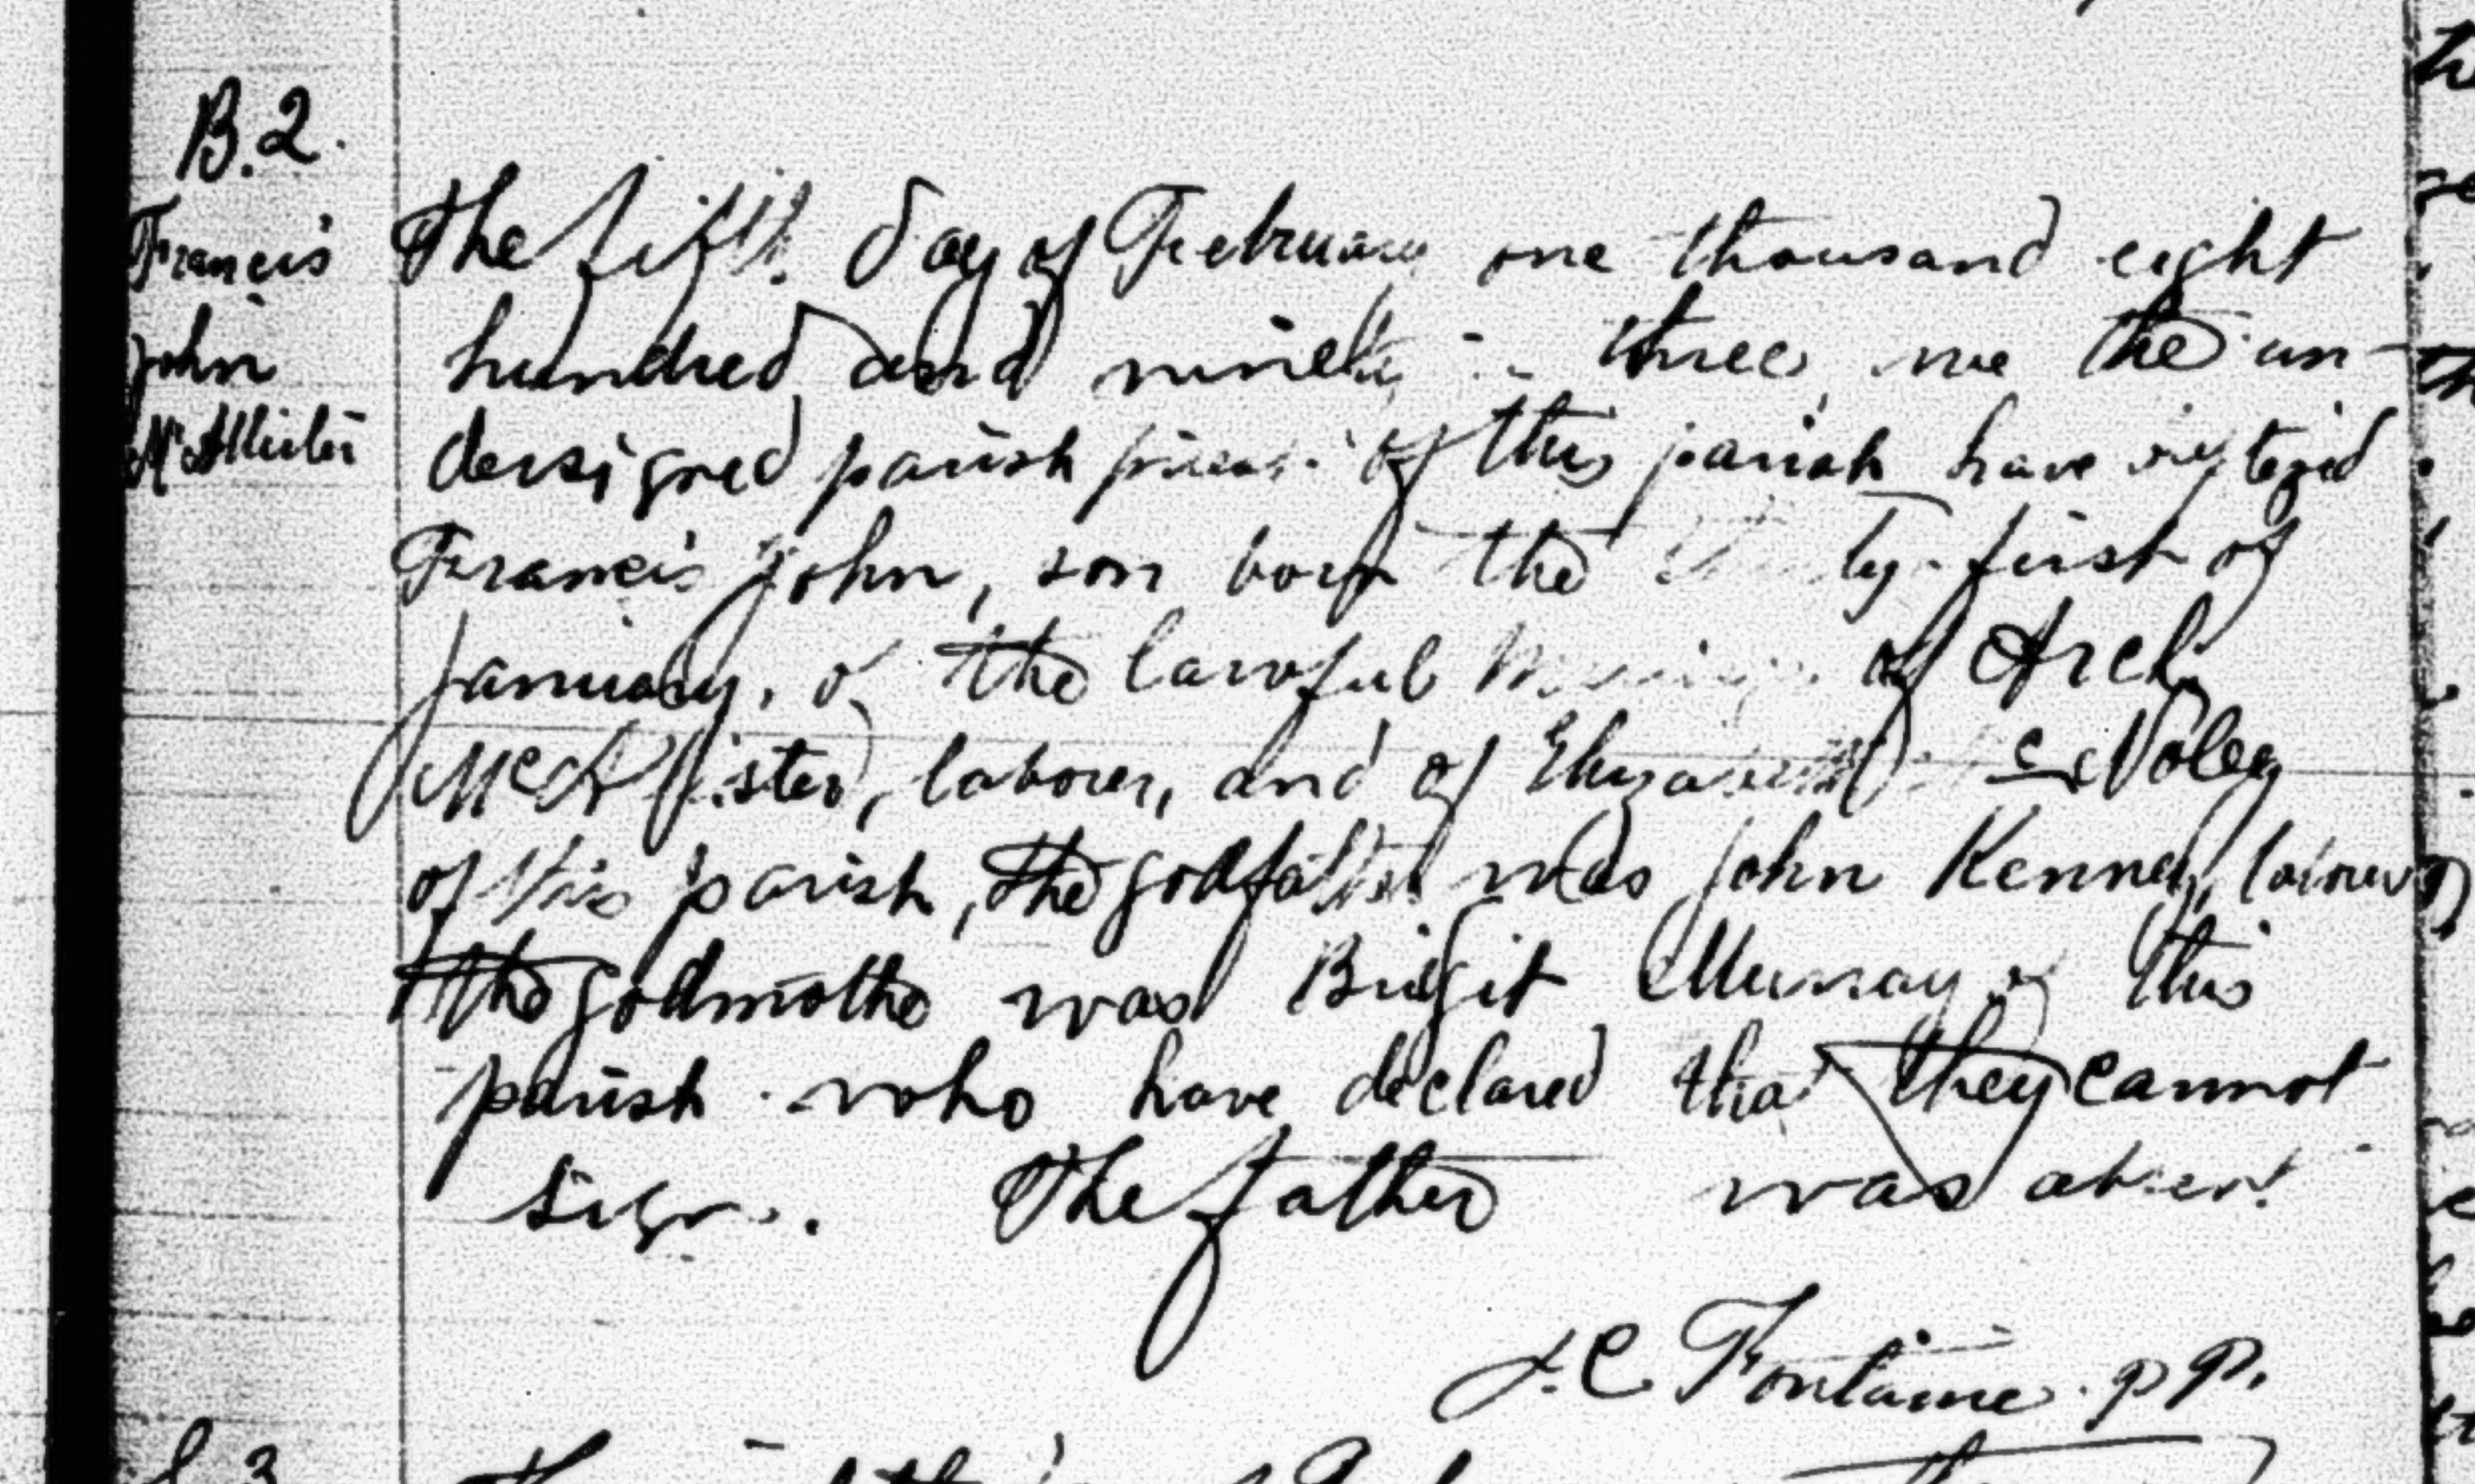 B.2.
Francis
John
McAllister
The fifth day of February one thousand eight
hundred and ninety-three, we the un-
dersigned parish priest of this parish have
Francis John, son born the first of
January, of the lawful marriage of Arch.
McAllister, laborer, and of Elizabeth
of this parish, the godfather was John Kenney, laborer,
the godmother was Bridgit Murray of this
parish who have declared that they cannot
sign. The father was absent
J.C. Fontaine p.p.